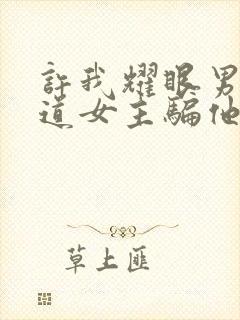 許我耀眼男
道女主騙他
草上匪